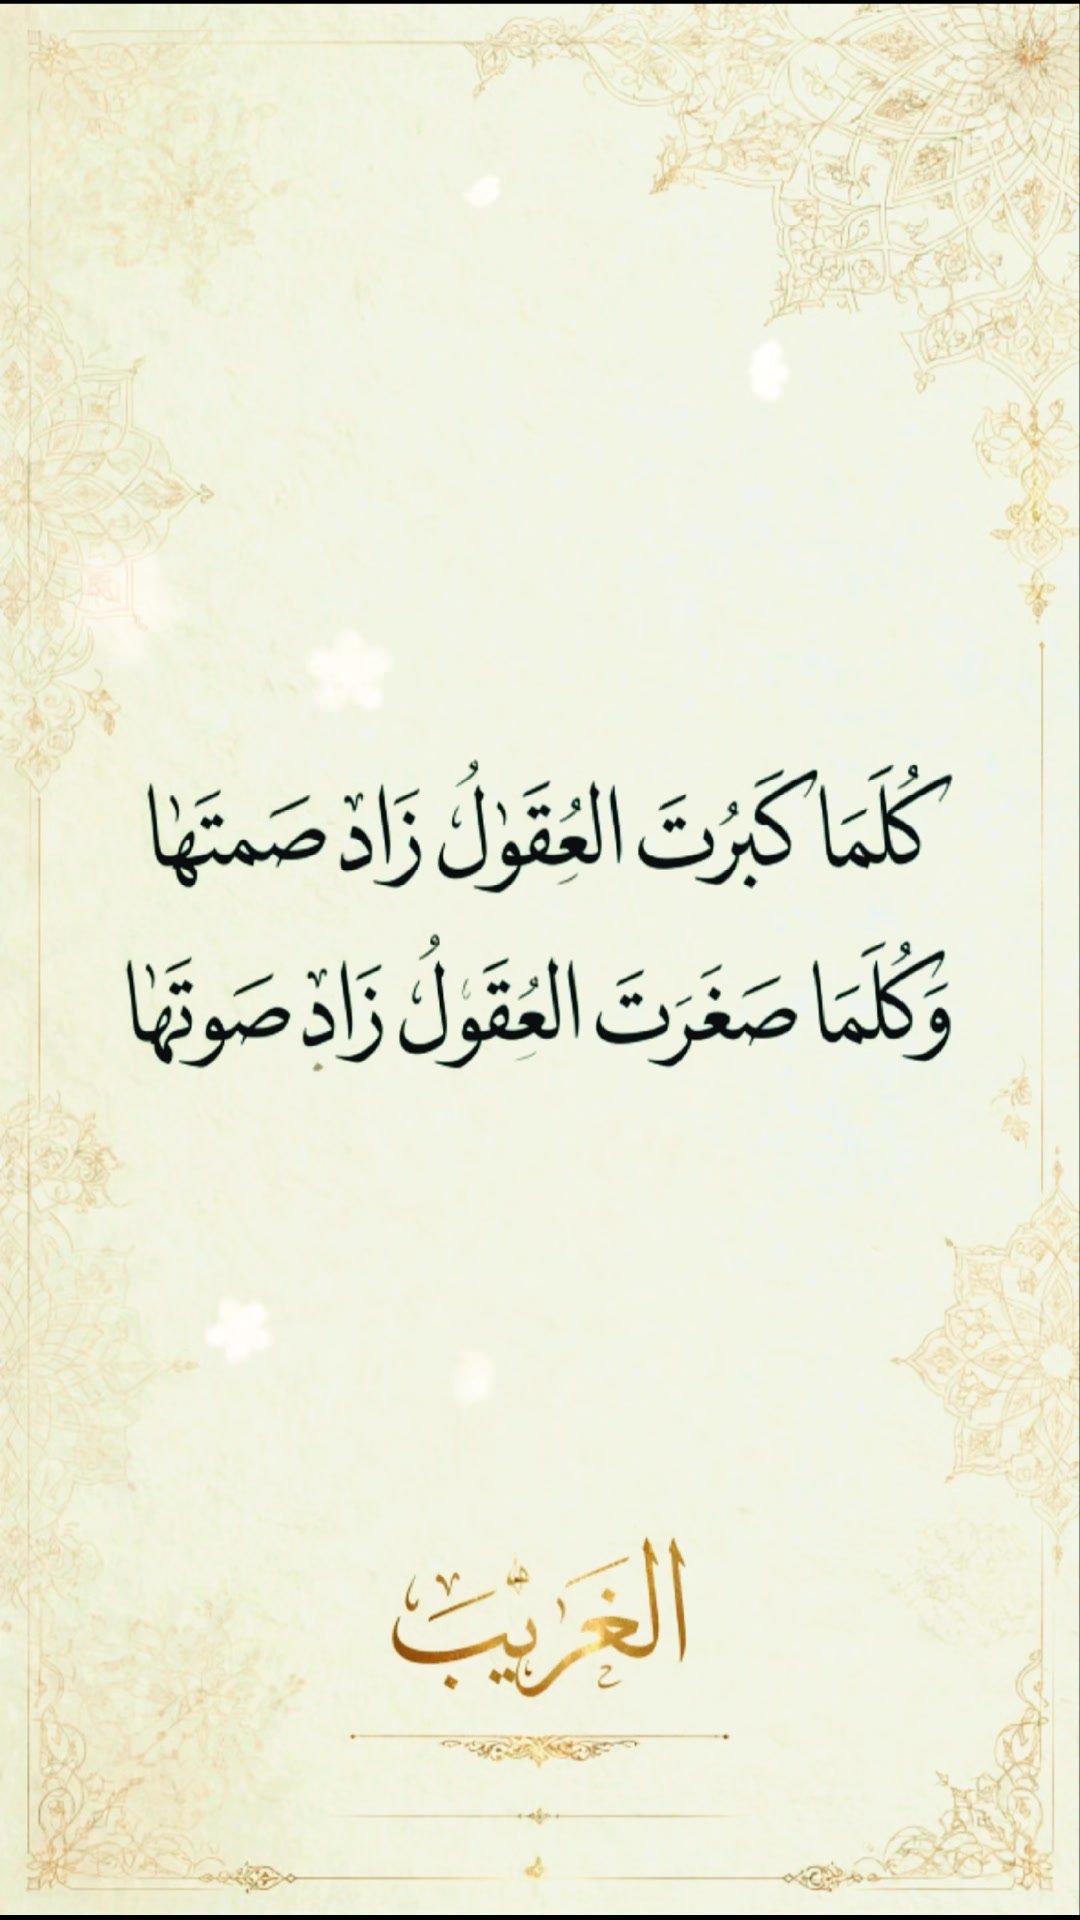 كُلَمَا كَبرُتَ العُقَولُ زَاد صَمتَها
وَكُلَمَا صَغَرَتَ العُقَولُ زَادِ صَوتَها
الغَريبَ